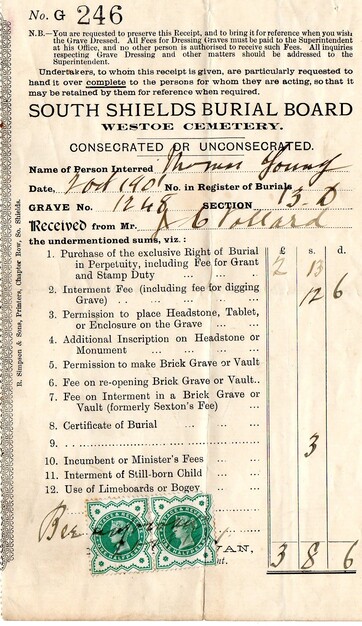 No. G 246
N.B.—You are requested to preserve this Receipt, and to bring it for reference when you wish
the Grave Dressed. All Fees for Dressing Graves must be paid to the Superintendent
at his Office, and no other person is authorised to receive such Fees. All inquiries
respecting Grave Dressing and other matters should be addressed to the
Superintendent.
Undertakers, to whom this receipt is given, are particularly requested to
hand it over complete to the persons for whom they are acting, so that it
may be retained by them for reference when required.
SOUTH SHIELDS BURIAL BOARD
WESTOE CEMETERY.
CONSECRATED OR UNCONSECRATED.
Name of Person Interred Thomas Young
Date, 1901 No. in Register of Burials
GRAVE No. 1248 SECTION 13 D
Received from Mr. Pollard
the undermentioned sums, viz.: £ s. d.
1. Purchase of the exclusive Right of Burial
in Perpetuity, including Fee for Grant
and Stamp Duty ... 2 13
2. Interment Fee (including fee for digging
Grave) ... 12 6
3. Permission to place Headstone, Tablet,
or Enclosure on the Grave ...
4. Additional Inscription on Headstone or
Monument ...
5. Permission to make Brick Grave or Vault
6. Fee on re-opening Brick Grave or Vault..
7. Fee on Interment in a Brick Grave or
Vault (formerly Sexton's Fee) ...
8. Certificate of Burial ...
9. ... 3
10. Incumbent or Minister's Fees ...
11. Interment of Still-born Child ...
12. Use of Limeboards or Bogey ...
3 8 6
R. Simpson & Sons, Printers, Chapter Row, So. Shields.